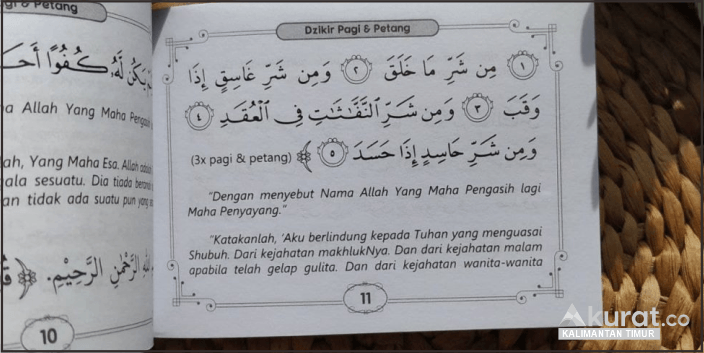 gi & Petang
يَكُنْ لَهُ كُفُوًا أَحَ
Allah Yang Maha Pengasih
ah, Yang Maha Esa. Allah
ala sesuatu. Dia tiada
an tidak ada suatu pun yang
الرَّحْمٰنِ الرَّحِيْمِ.
10
Dzikir Pagi & Petang
١ مِن شَرِّ مَا خَلَقَ ٢ وَمِن شَرِّ غَاسِقٍ إِذَا
وَقَبَ ٣ وَمِن شَرِّ النَّفَّٰثَٰتِ فِي الْعُقَدِ ٤
وَمِن شَرِّ حَاسِدٍ إِذَا حَسَدَ ٥ (3x pagi & petang)
"Dengan menyebut Nama Allah Yang Maha Pengasih lagi
Maha Penyayang."
"Katakanlah, 'Aku berlindung kepada Tuhan yang menguasai
Shubuh. Dari kejahatan makhlukNya. Dan dari kejahatan malam
apabila telah gelap gulita. Dan dari kejahatan wanita-wanita
11
Akurat.co
KALIMANTAN TIMUR